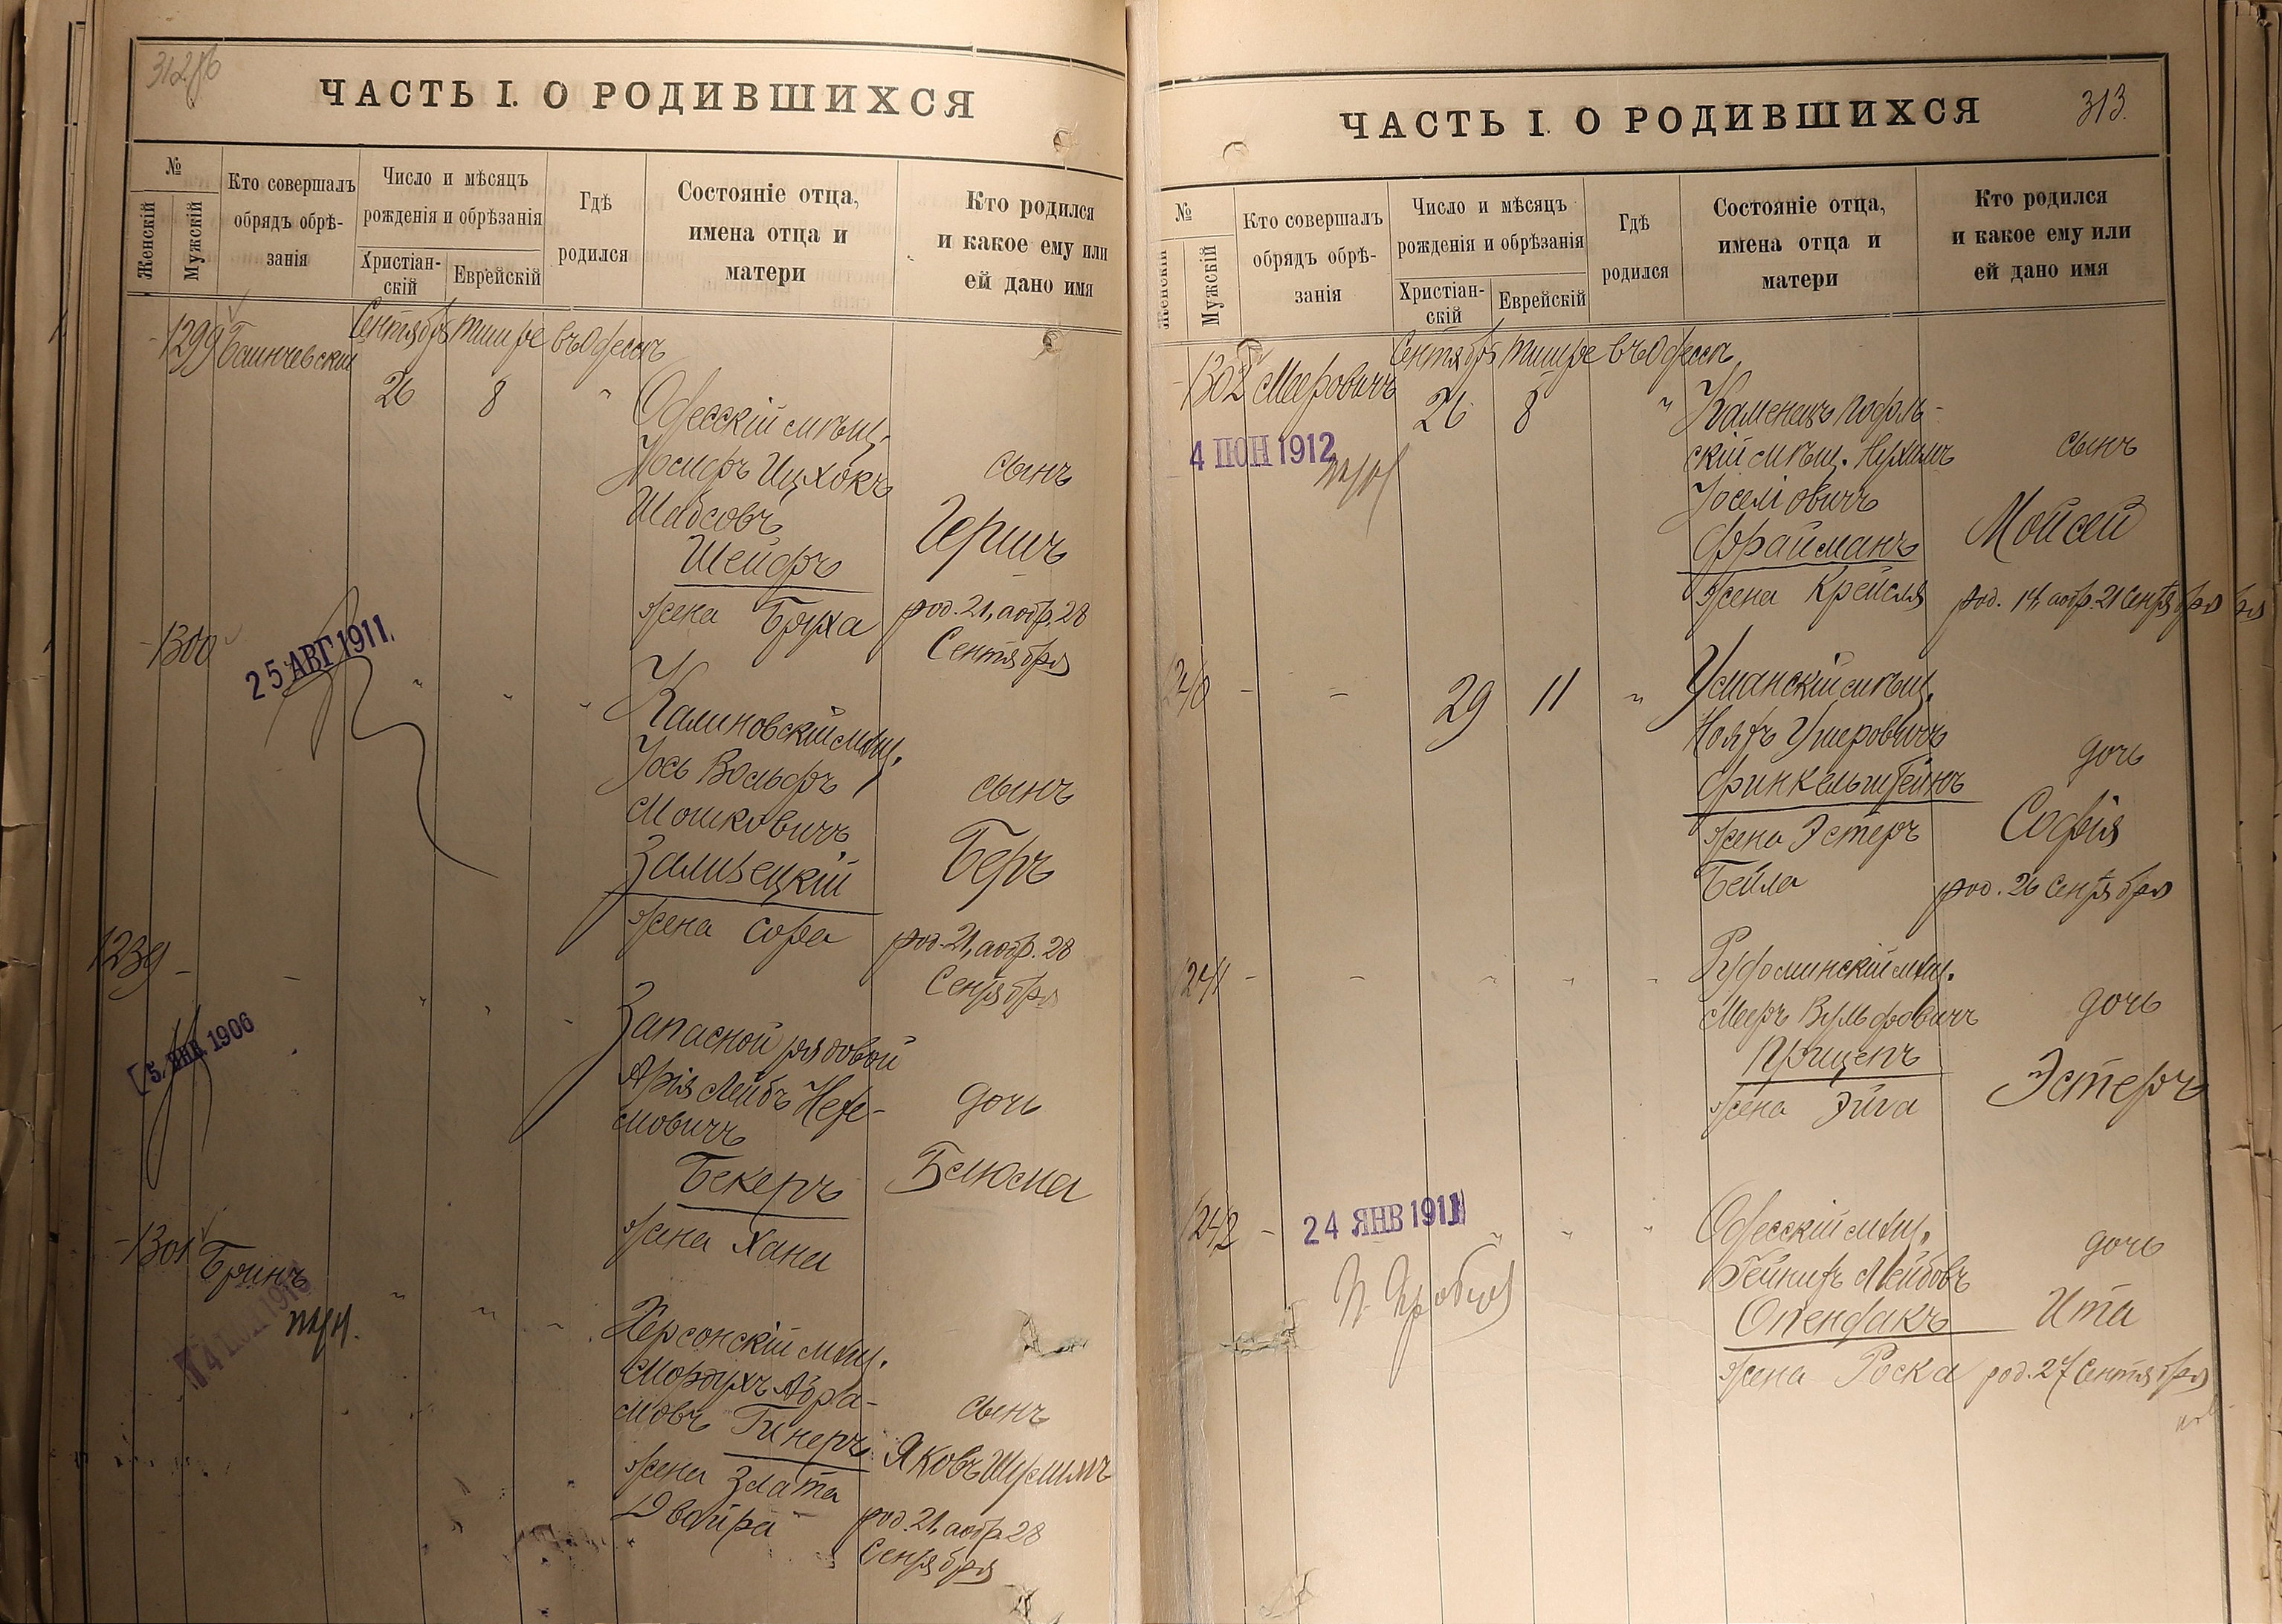 ЧАСТЬ I. О РОДИВШИХСЯ
№
Женскій
Мужскій
Кто совершалъ
обрядъ обрѣ-
занія
Число и мѣсяцъ
рожденія и обрѣзанія
Христіан-
скій
Еврейскій
Гдѣ
родился
Состояніе отца,
имена отца и
матери
Кто родился
и какое ему или
ей дано имя
1299
Сентябрь Тишре въ Одессѣ
26 8 "
Одесскій мѣщ.
Іосифъ Ицхокъ
Шабсовъ
Шейфъ
жена Бруха
сынъ
Гершъ
род. 21, а обр. 28
Сентября
1300
25 АВГ 1911
" " "
Калиновскій мѣщ.
Іось Вольфъ
Мошковичъ
Заливецкій
жена Сора
сынъ
Беръ
род. 21, а обр. 28
Сентября
1239 - -
5. ЯНВ. 1906
" " "
Запасной рядовой
Арія Лейбъ Нехе-
мовичъ
Бекеръ
жена Хана
дочь
Блюма
1301 Бринъ
" " "
Херсонскій мѣщ.
Мордухъ Абра-
мовъ Гинеръ
жена Злата
Двойра
сынъ
Яковъ
род. 21, а обр 28
Сентября
ЧАСТЬ I. О РОДИВШИХСЯ
313.
№
Женскій
Мужскій
Кто совершалъ
обрядъ обрѣ-
занія
Число и мѣсяцъ
рожденія и обрѣзанія
Христіан-
скій
Еврейскій
Гдѣ
родился
Состояніе отца,
имена отца и
матери
Кто родился
и какое ему или
ей дано имя
1302 Мееровичъ
Сентябрь Тишре въ Одессѣ
26 8 "
4 ІЮН 1912
Каменецъ Подоль-
скій мѣщ. Нухимъ
Іоселіовичъ
Фрайманъ
жена Крейсля
сынъ
Мойсей
род. 14, а обр. 21 Сентября
1240 - -
29 11 "
Уманскій мѣщ.
Ушеровичъ
Финкельштейнъ
жена Эстеръ
Бейла
дочь
Софія
род. 26 Сентября
1241 - -
" " "
мѣщ.
Мееръ Вульфовичъ
Прицепъ
жена Эйга
дочь
Эстеръ
1242 -
24 ЯНВ 1911
" " "
Одесскій мѣщ.
Лейбовъ
Опендакъ
жена Роска
дочь
Ита
род. 27 Сентября